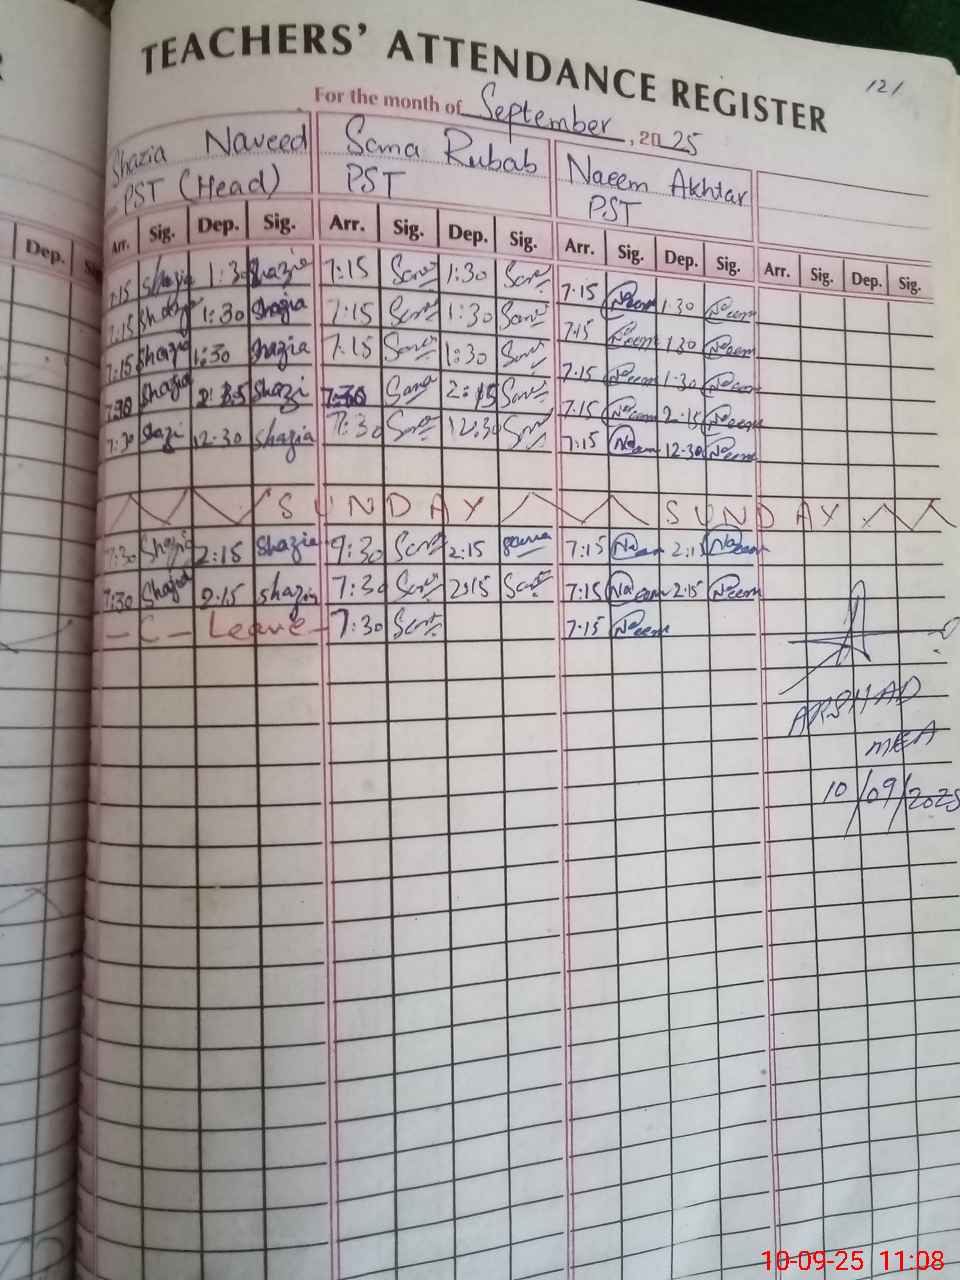 TEACHERS' ATTENDANCE REGISTER
121
For the month of September, 2025
Shazia Naveed Sama Rubab Naeem Akhtar
PST (Head) PST PST
Dep. Arr. Sig. Dep. Sig. Arr. Sig. Dep. Sig. Arr. Sig. Dep. Sig. Arr. Sig. Dep. Sig.
7:15 Shazia 1:30 Shazia 7:15 1:30 7:15 Naeem 1:30 Naeem
7:15 Shazia 1:30 Shazia 7:15 1:30 7:15 Naeem 1:30 Naeem
7:15 Shazia 1:30 Shazia 7:15 1:30 7:15 Naeem 1:30 Naeem
7:30 Shazia Shazi 7:30 Sama 2:15 7:15 Naeem 2:15 Naeem
7:30 Shazi 12:30 Shazia 7:30 12:30 7:15 Naeem 12:30 Naeem
SUNDAY SUNDAY
7:30 Shazia 2:15 Shazia 9:30 2:15 Sama 7:15 Naeem 2:15 Naeem
7:30 Shazia 2:15 Shazia 7:30 2:15 7:15 Naeem 2:15 Naeem
- C - Leave - 7:30 7:15 Naeem
ARSHAD
MEA
10/09/2025
10-09-25 11:08